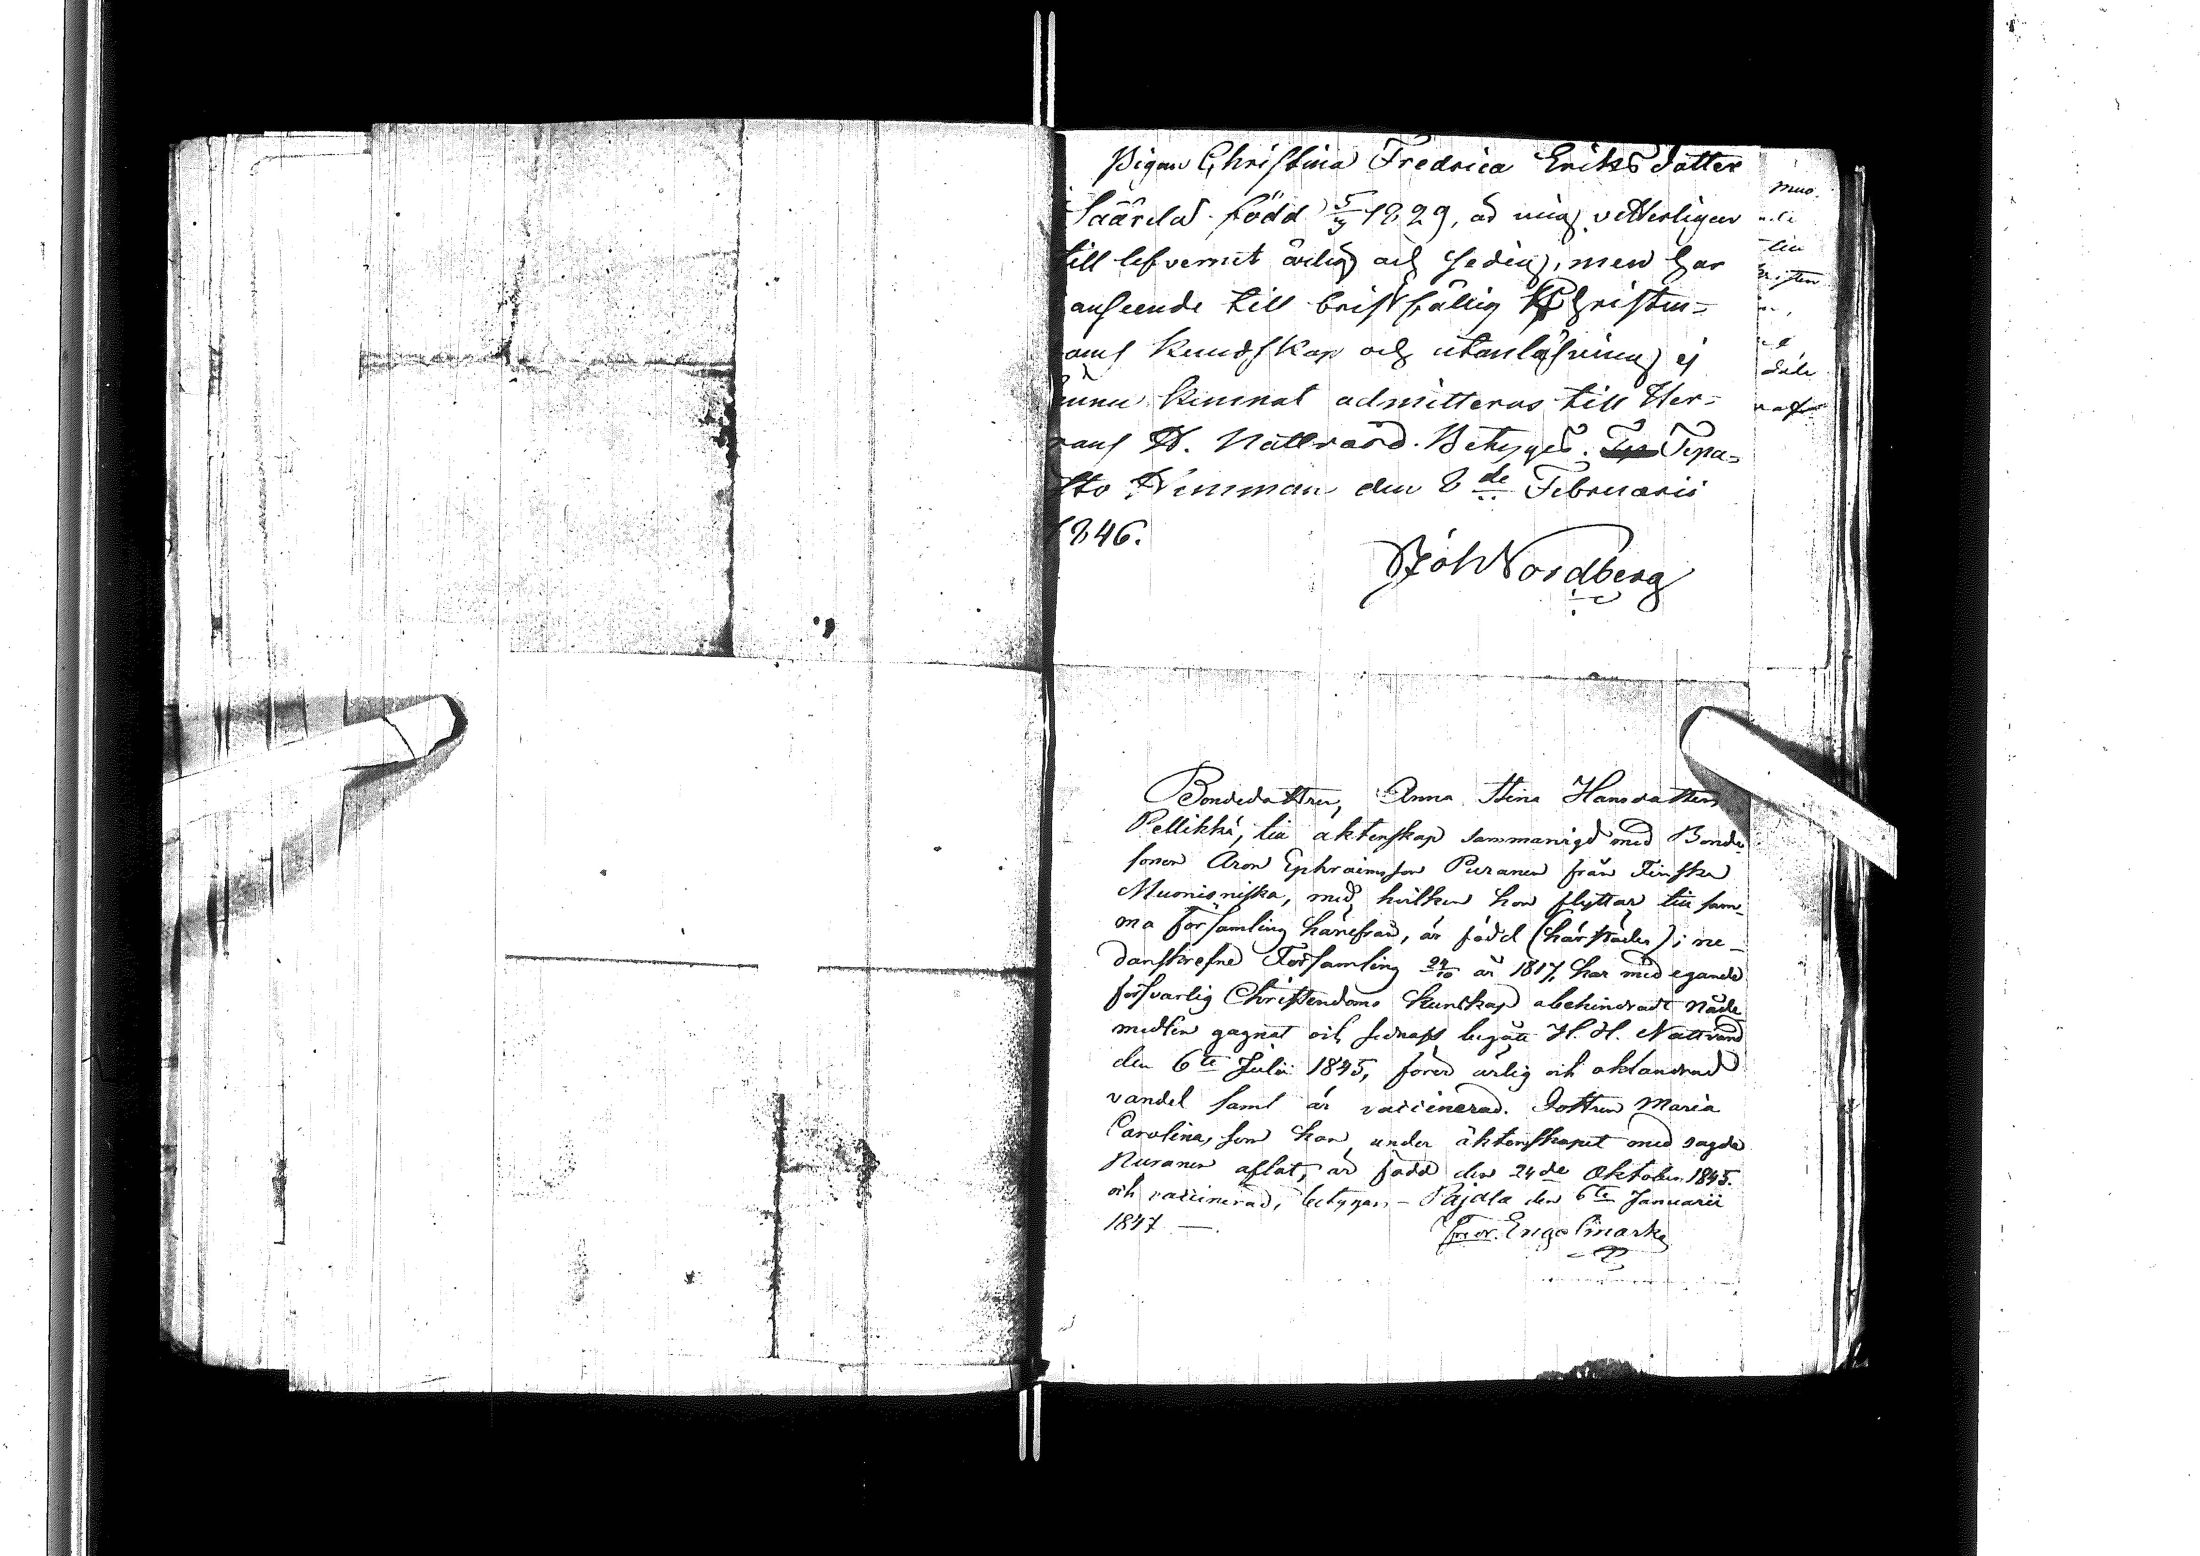 Pigan Christina Fredrica Eriks dotter
Säärelä född 5/9 1829, är mig vetterligen
till lefvernet ärlig och sedig, men har
anseende till bristfällig Christen-
doms kundskap och utanläsning ej
ännu kunnat admitteras till Her-
rans H. Nattvard. Betygas. Tepa-
sto Nimman den 8de Februarii
1846.
Nordberg
Bondedottren, Anna Stina Hansdotter
Pellikka, till äktenskap sammanvigd med Bonde-
sonen Aron Ephraimsson Puranen från Finska
Muonioniska, med hvilken hon flyttar till sam-
ma församling härifrån, är född (härstädes) i ne-
danskrefne Församling 24/10 år 1817, har med egande
försvarlig Christendoms kunskap obehindradt nåde
medlen gagnat och sednast begått H. H. Nattvard
den 6te Julii 1845, förer ärlig och oklandrad
vandel samt är vaccinerad. Dottren Maria
Carolina, som hon under äktenskapet med sagde
Puranen aflat, är född den 24de Oktober 1845.
och vaccinerad, betygas, - Pajala den 6te Januarii
1847 —
Engelmark
mus.